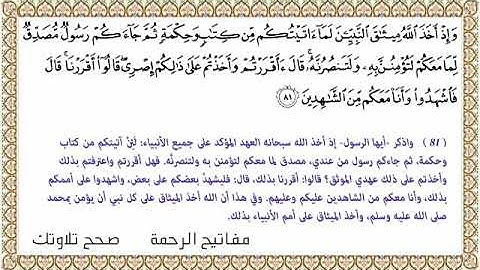 وَإِذْ أَخَذَ اللَّهُ مِيثَاقَ النَّبِيِّينَ لَمَا ءَاتَيْتُكُم مِّن كِتَابٍ وَحِكْمَةٍ ثُمَّ جَاءَكُمْ رَسُولٌ مُّصَدِّقٌ
لِّمَا مَعَكُمْ لَتُؤْمِنُنَّ بِهِ وَلَتَنصُرُنَّهُ ۚ قَالَ ءَأَقْرَرْتُمْ وَأَخَذْتُمْ عَلَىٰ ذَٰلِكُمْ إِصْرِي ۖ قَالُوا أَقْرَرْنَا ۚ قَالَ
فَاشْهَدُوا وَأَنَا مَعَكُم مِّنَ الشَّاهِدِينَ ٨١
(81) واذكر -أيها الرسول- إذ أخذ الله سبحانه العهد المؤكد على جميع الأنبياء: لَئِنْ آتيتكم من كتاب
وحكمة، ثم جاءكم رسول من عندي، مصدق لما معكم لتؤمنن به ولتنصرنَّه. فهل أقررتم واعترفتم بذلك
وأخذتم على ذلك عهدي الموثق؟ قالوا: أقررنا بذلك، قال: فليشهدْ بعضكم على بعض، واشهدوا على أممكم
بذلك، وأنا معكم من الشاهدين عليكم وعليهم. وفي هذا أن الله أخذ الميثاق على كل نبي أن يؤمن بمحمد
صلى الله عليه وسلم، وأخذ الميثاق على أمم الأنبياء بذلك.
مفاتيح الرحمة صحح تلاوتك